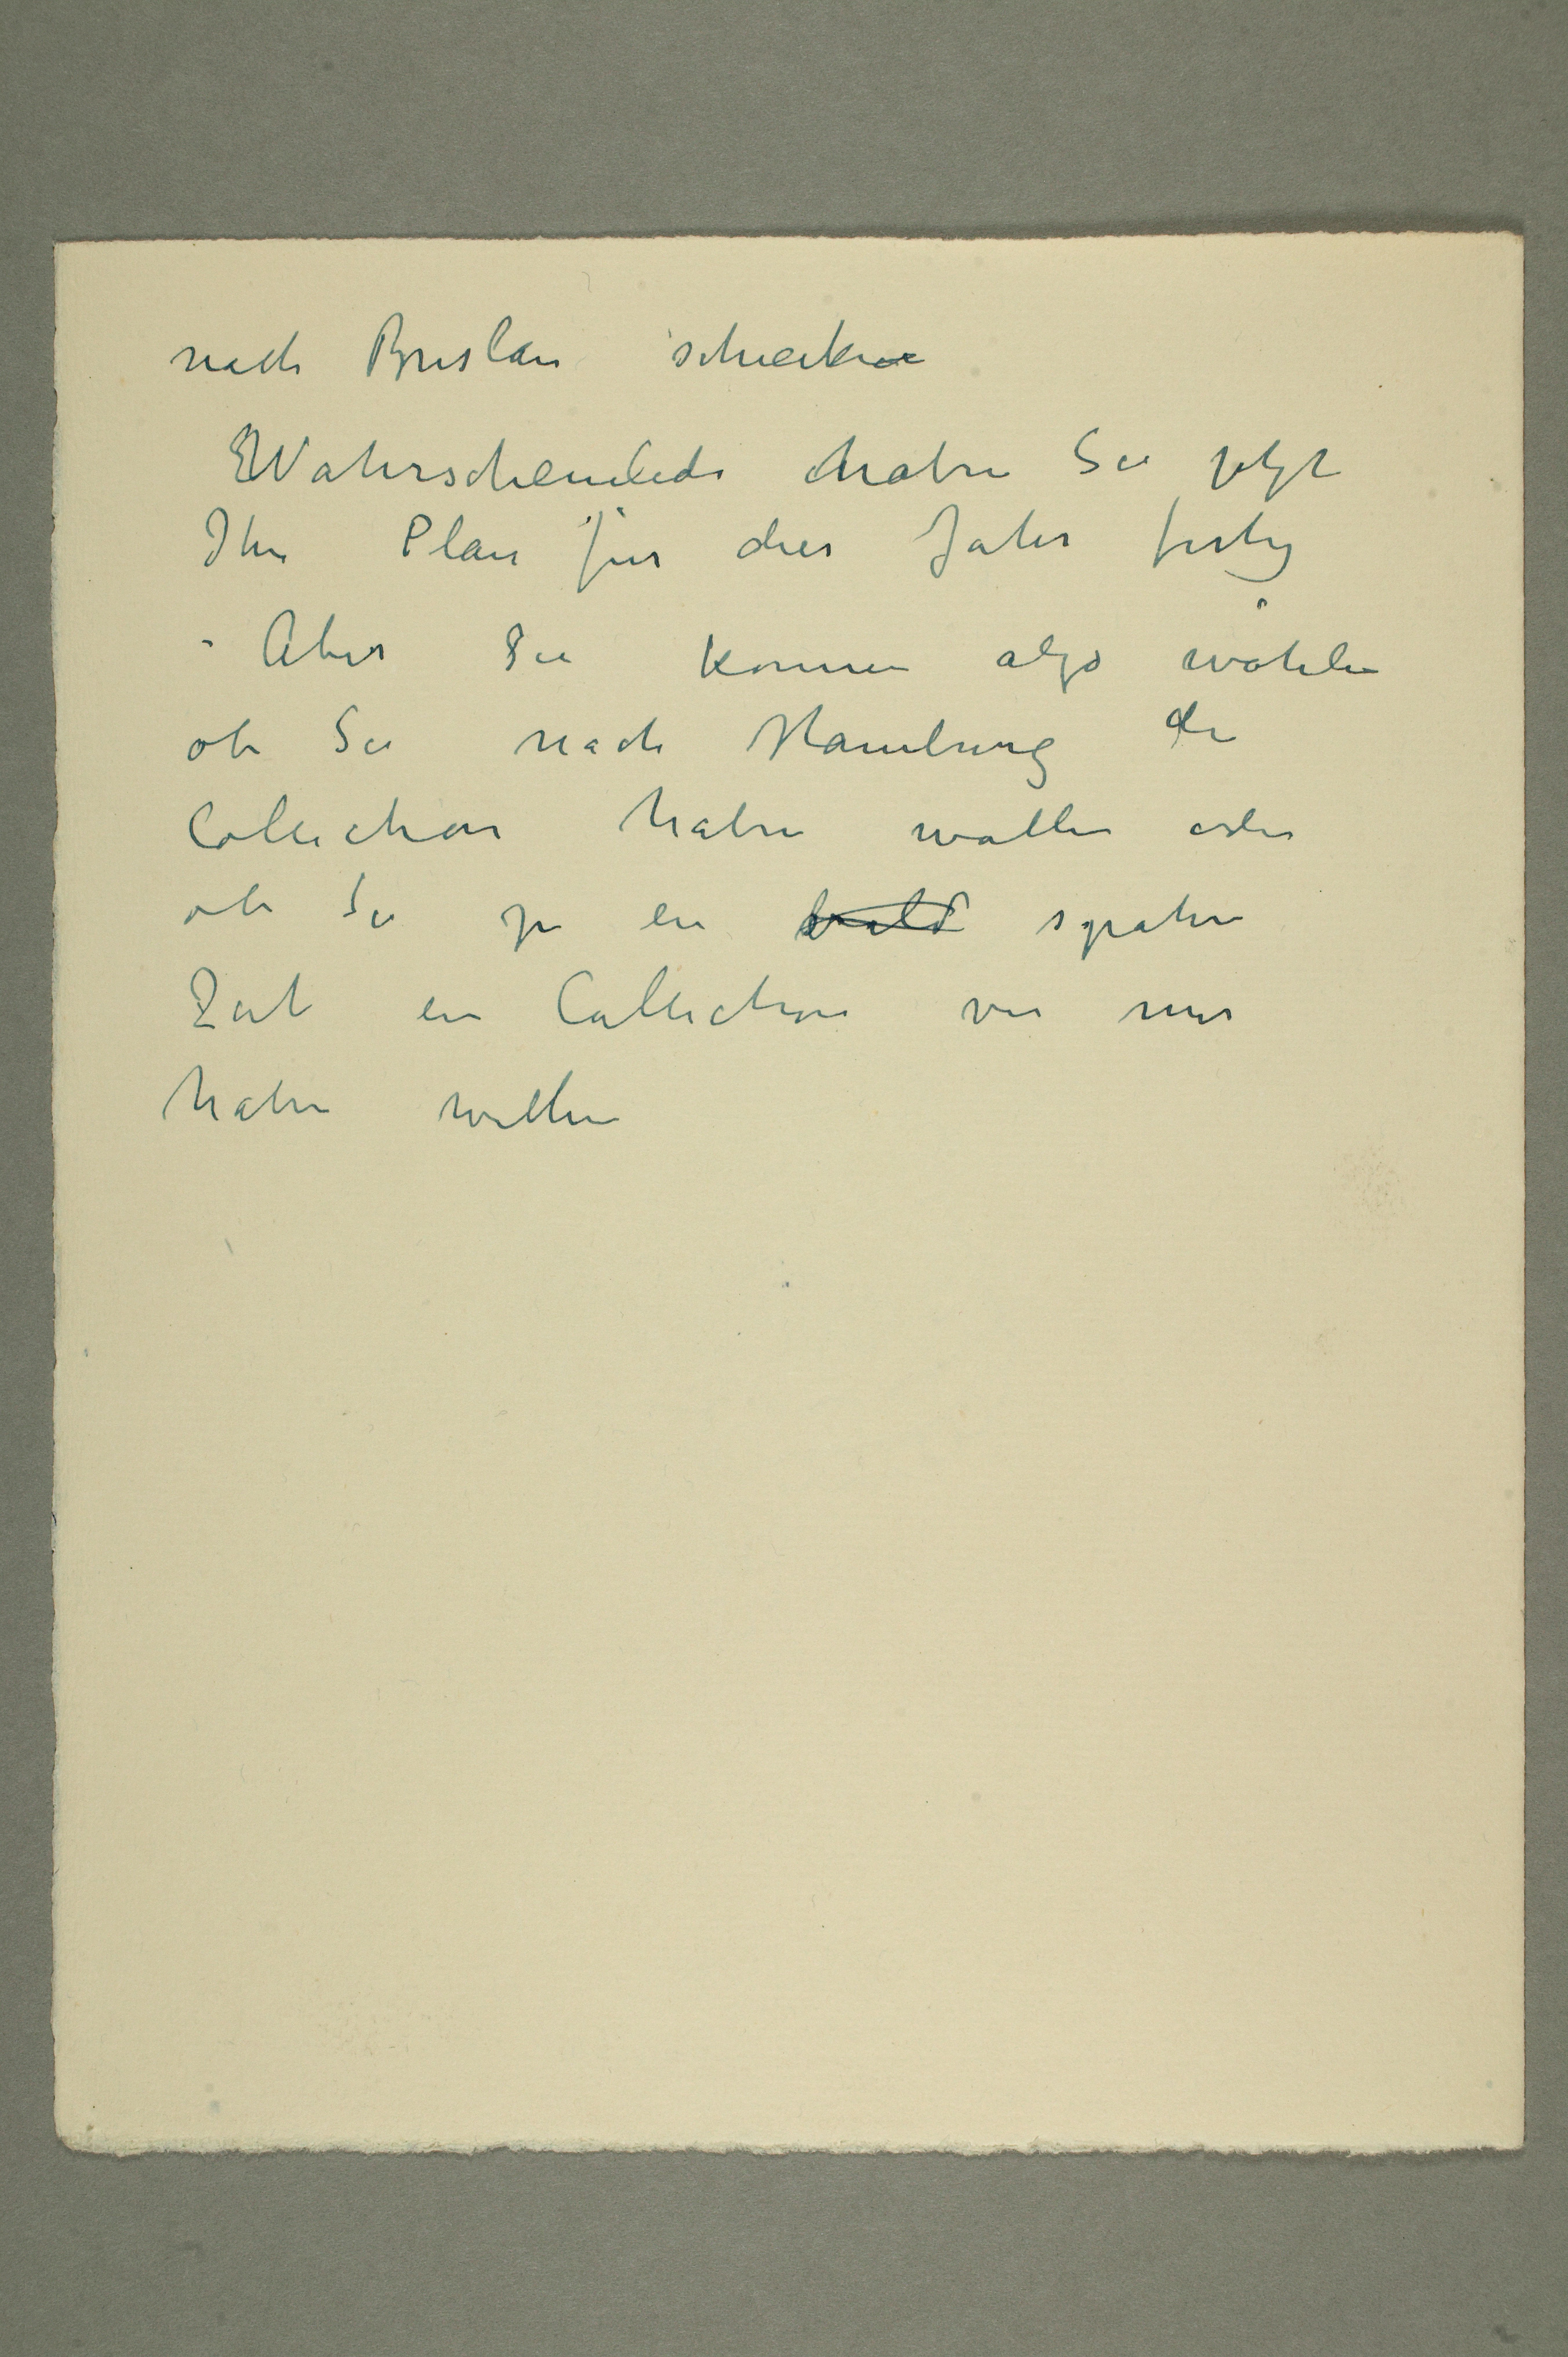 nach Breslau schicken
Wahrscheinlich haben Sie jetzt
Ihre Plan für dies Jahr fertig
- Aber Sie können also wählen
ob Sie nach Hamburg die
Collection haben wollen oder
ob Sie zu ein bald späteren
Zeit ein Collection von mir
haben wollen